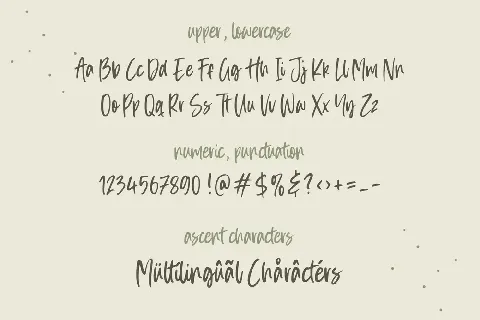 upper, lowercase
Aa Bb Cc Dd Ee Ff Gg Hh Ii Jj Kk Ll Mm Nn
Oo Pp Qq Rr Ss Tt Uu Vv Ww Xx Yy Zz
numeric, punctuation
1234567890 !@#$%&?<>+=_-
ascent characters
Mültilingûãl Chåråctérs